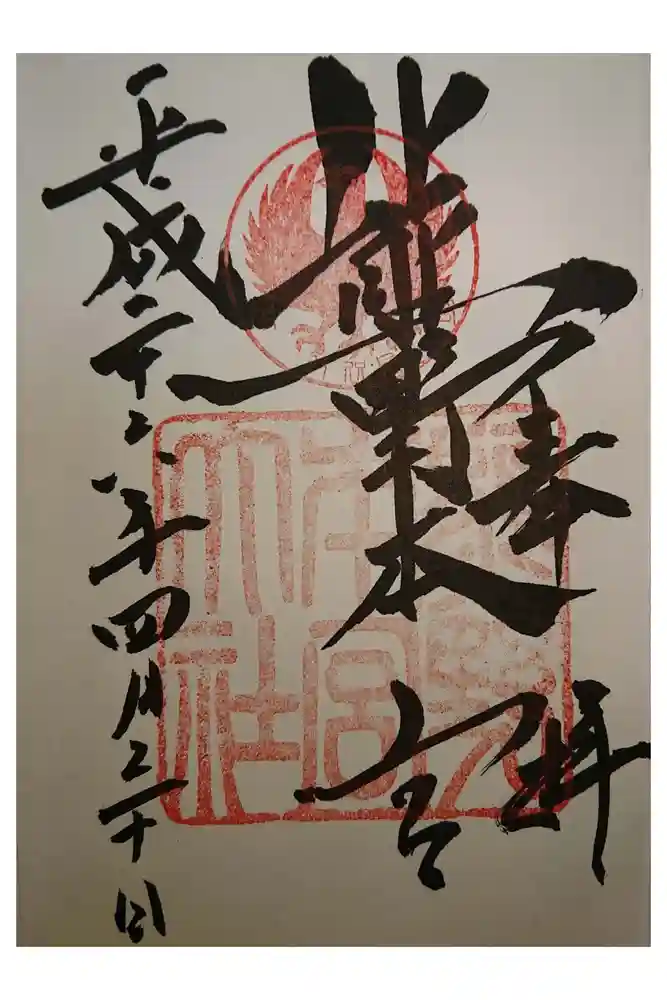 奉拝
熊野本宮
平成二十六年四月三十日
熊野
本宮
大社